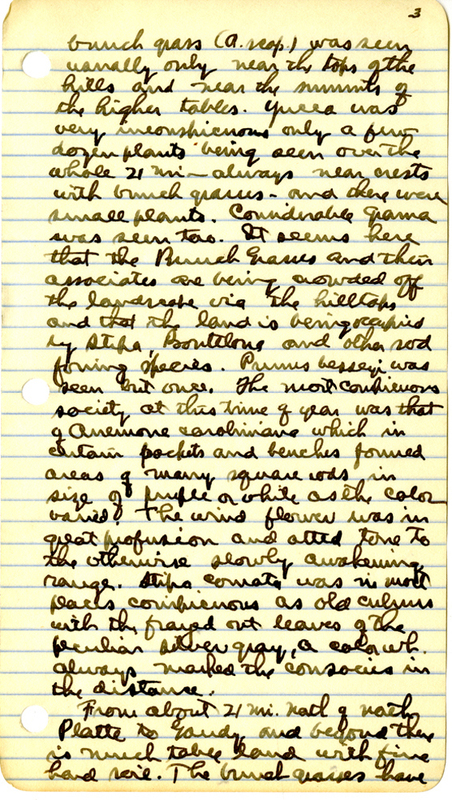 3
bunch grass (A. scop.) was seen
usually only near the tops of the
hills and near the summits of
the higher tables. Yucca was
very inconspicuous only a few
dozen plants being seen over the
whole 21 mi - always near crests
with bunch grasses - and these were
small plants. Considerable Grama
was seen too. It seems here
that the Bunch Grasses and their
associates are being crowded off
the landscape via the hilltops
and that the land is being occupied
by Stipa, Bouteloua and other sod
forming species. Prunus besseyi was
seen but once. The most conspicuous
society at this time of year was that
of Anemone caroliniana which in
certain pockets and benches formed
areas of many square rods in
size of purple or white as the color
varied. The wind flower was in
great profusion and added tone to
the otherwise slowly awakening
range. Stipa comata was in most
places conspicuous as old culms
with the frayed out leaves of the
peculiar silver gray, a color wh.
always marked the consocies in
the distance.
From about 21 mi. north of North
Platte to Gandy and beyond there
is much table land with fine
hard soil. The bunch grasses have